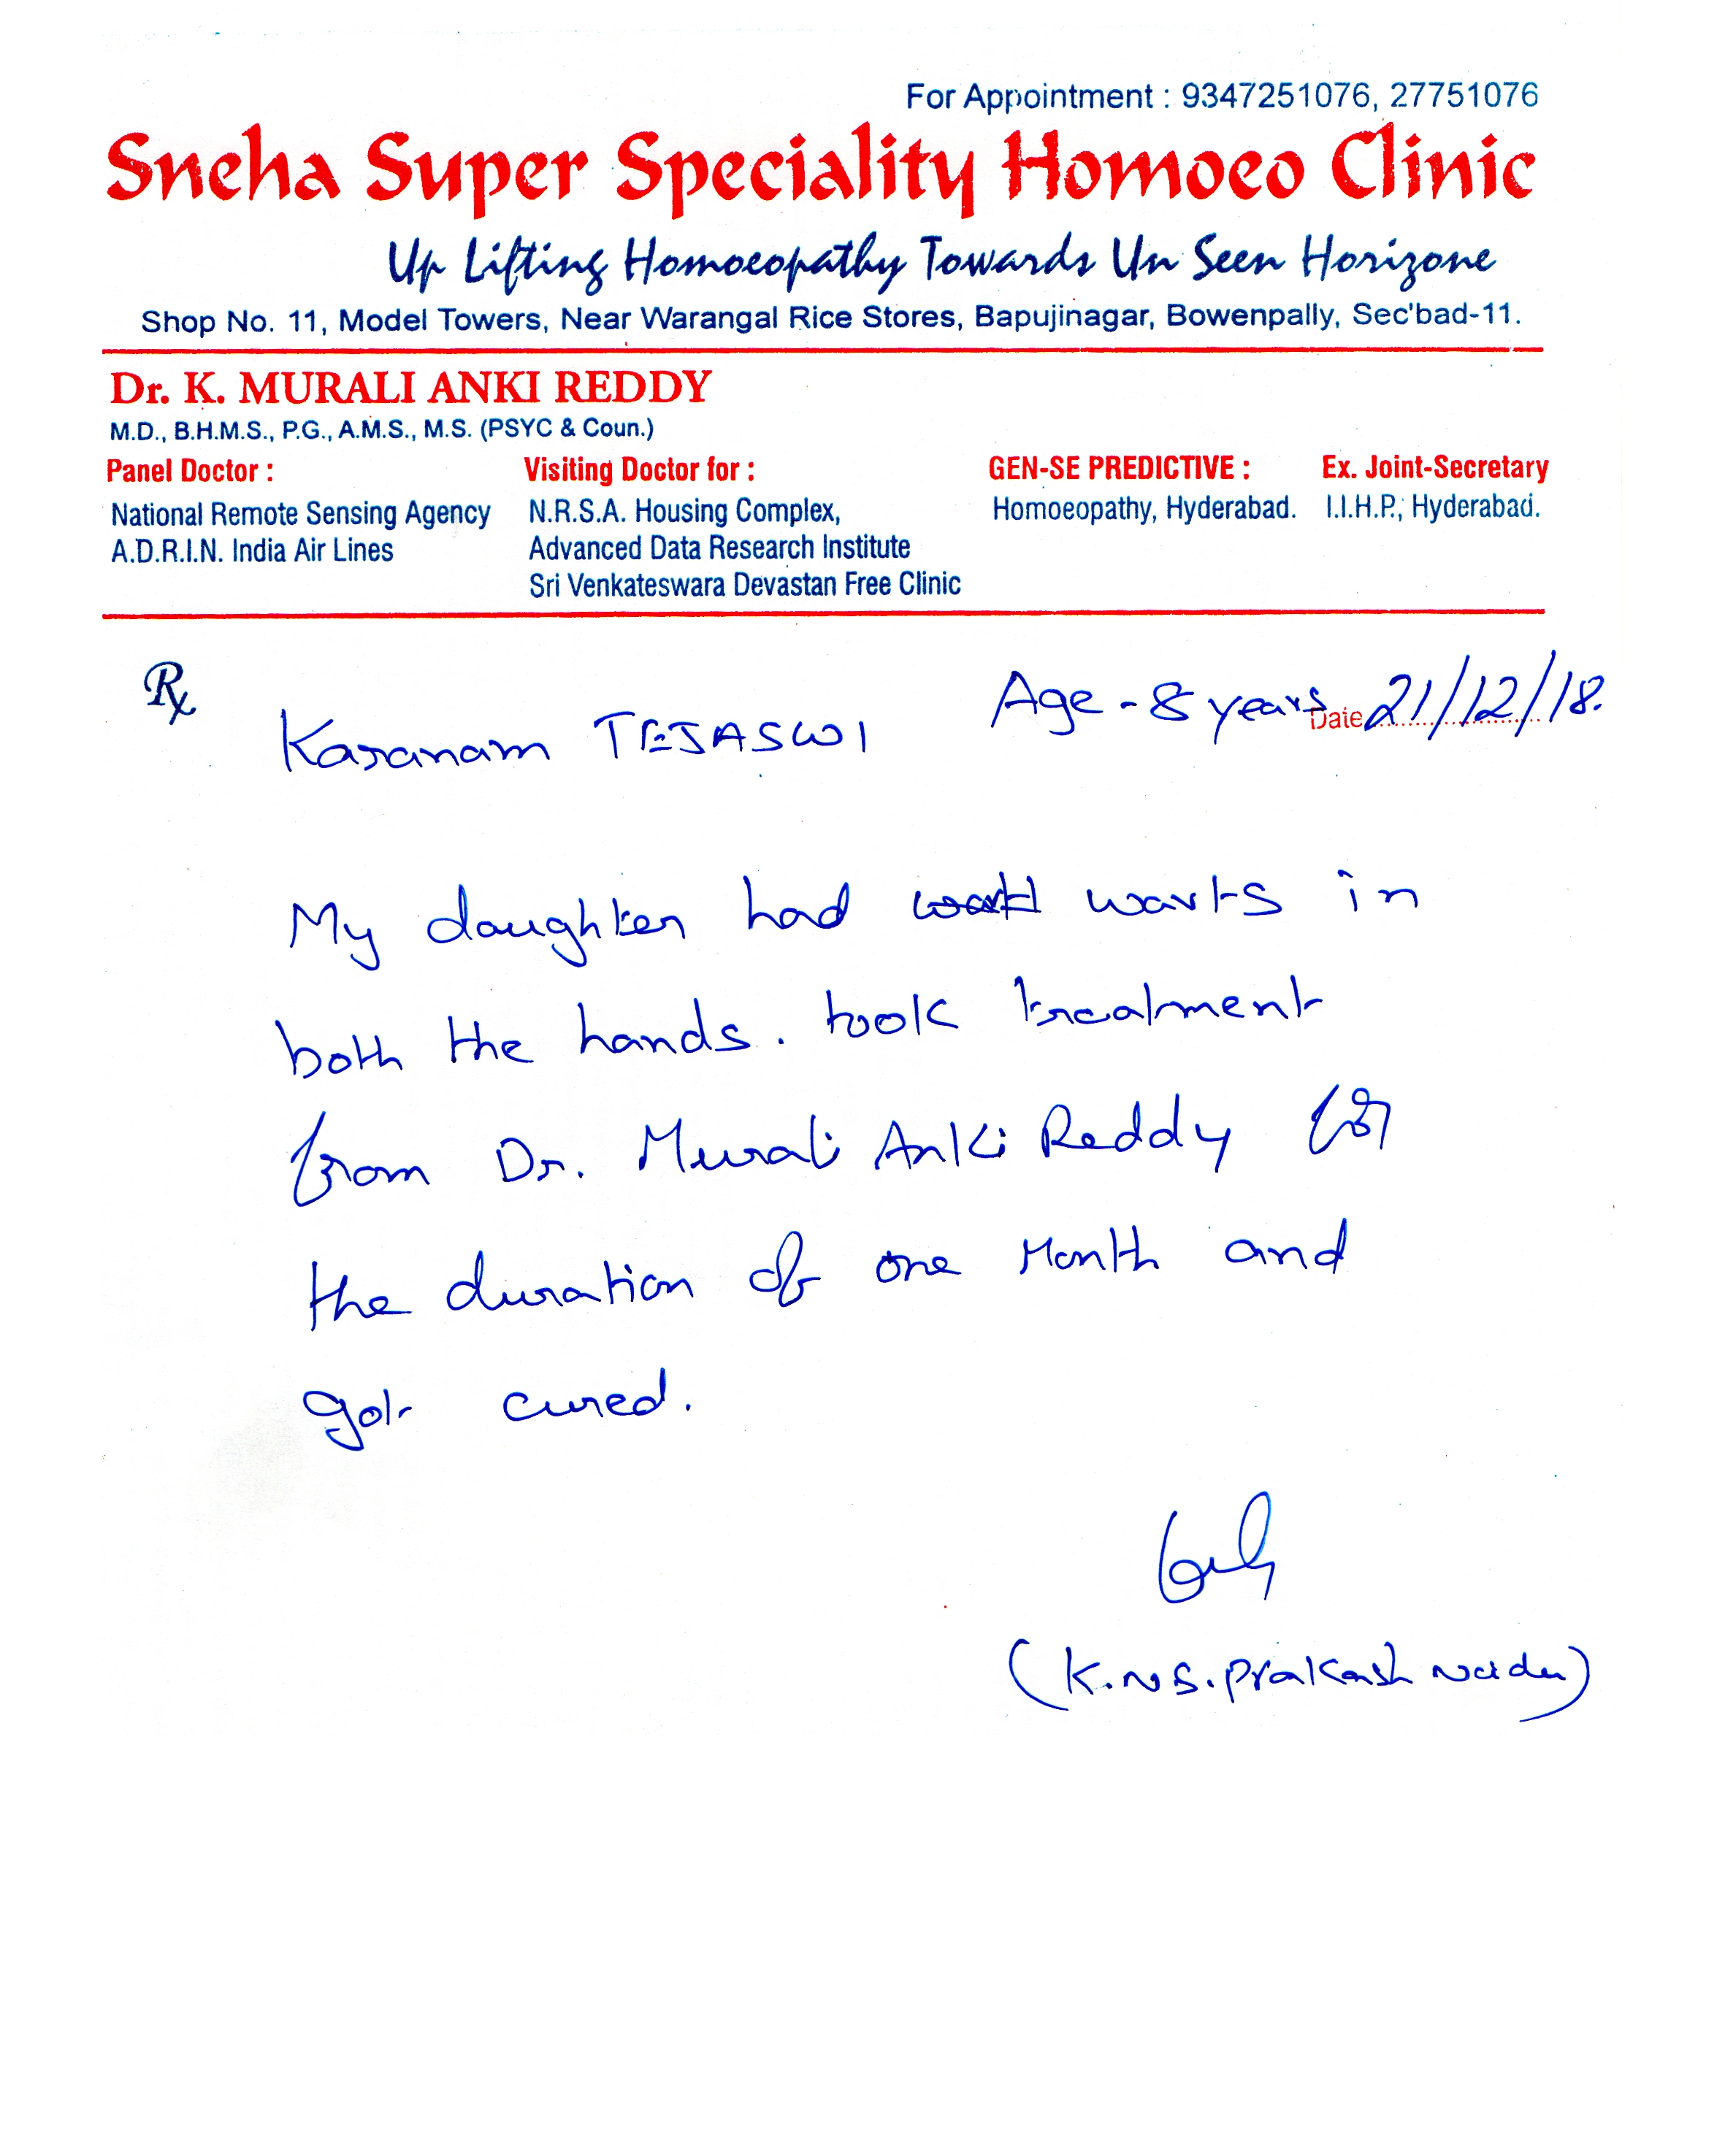 For Appointment : 9347251076, 27751076
Sneha Super Speciality Homoeo Clinic
Up Lifting Homoeopathy Towards Un Seen Horizone
Shop No. 11, Model Towers, Near Warangal Rice Stores, Bapujinagar, Bowenpally, Sec'bad-11.
Dr. K. MURALI ANKI REDDY
M.D., B.H.M.S., P.G., A.M.S., M.S. (PSYC & Coun.)
Panel Doctor : Visiting Doctor for : GEN-SE PREDICTIVE : Ex. Joint-Secretary
National Remote Sensing Agency N.R.S.A. Housing Complex, Homoeopathy, Hyderabad. I.I.H.P., Hyderabad.
A.D.R.I.N. India Air Lines Advanced Data Research Institute
Sri Venkateswara Devastan Free Clinic
Rx Age - 8 years Date 21/12/18.
Karanam TEJASWI
My daughter had warts in
both the hands. took treatment
from Dr. Murali Anki Reddy for
the duration of one Month and
got cured.
(K.N.S. Prakash Naidu)